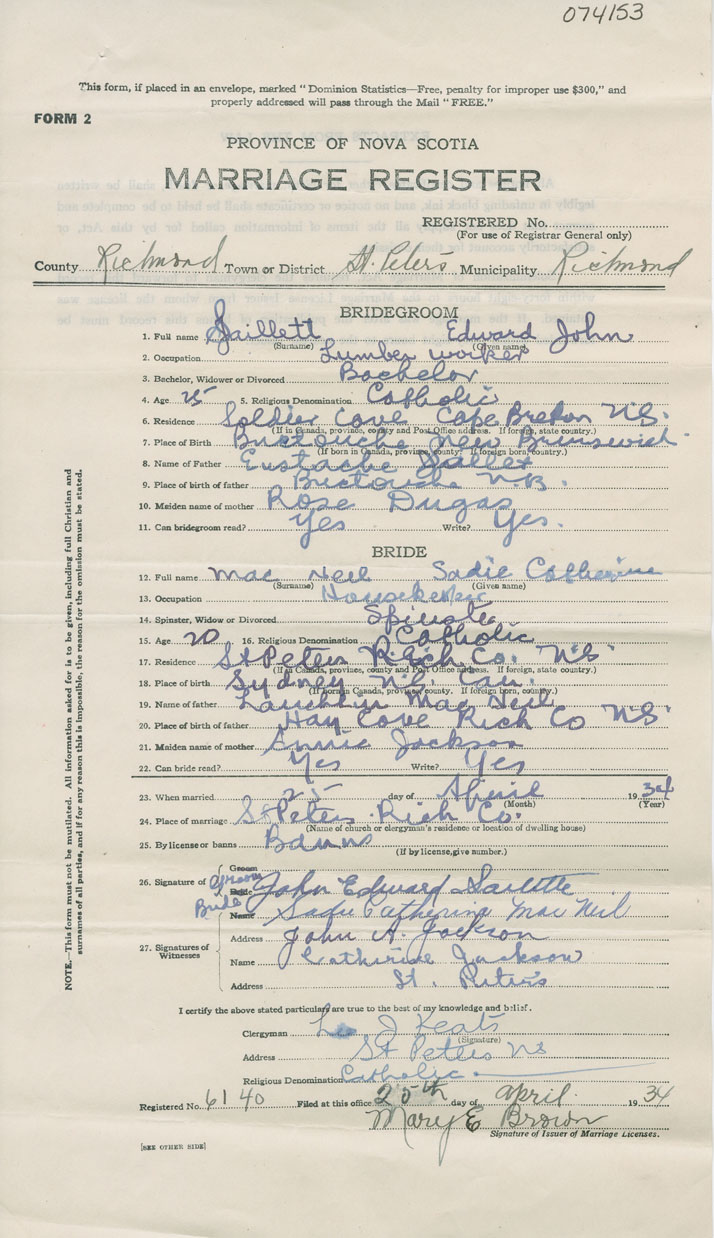 074153
This form, if placed in an envelope, marked "Dominion Statistics—Free, penalty for improper use $300," and
properly addressed will pass through the Mail "FREE."
FORM 2
PROVINCE OF NOVA SCOTIA
MARRIAGE REGISTER
REGISTERED No.
(For use of Registrar General only)
County Richmond Town or District St. Peter's Municipality Richmond
BRIDEGROOM
1. Full name Jaillett Edward John
(Surname) (Given name)
2. Occupation Lumber worker
3. Bachelor, Widower or Divorced Bachelor
4. Age 25 5. Religious Denomination Catholic
6. Residence Soldier Cove Cape Breton N.S.
(If in Canada, province, county and Post Office address. If foreign, state country.)
7. Place of Birth Buctouche New Brunswick
(If born in Canada, province, county. If foreign born, country.)
8. Name of Father Eustache Jallet
9. Place of birth of father Buctouche N.B.
10. Maiden name of mother Rose Dugas
11. Can bridegroom read? Yes Write? Yes.
BRIDE
12. Full name Mac Neil Sadie Catherine
(Surname) (Given name)
13. Occupation Housekeeper
14. Spinster, Widow or Divorced Spinster
15. Age 20 16. Religious Denomination Catholic
17. Residence St Peters Rich Co. N.S.
(If in Canada, province, county and Post Office address. If foreign, state country.)
18. Place of birth Sydney N.S. Can.
(If born in Canada, province, county. If foreign born, country.)
19. Name of father Lauchlin Mac Neil
20. Place of birth of father Hay Cove Rich Co N.S.
21. Maiden name of mother Annie Jackson
22. Can bride read? Yes Write? Yes
23. When married 25 day of April 1934
(Month) (Year)
24. Place of marriage St Peters Rich Co.
(Name of church or clergyman's residence or location of dwelling house)
25. By license or banns Banns
(If by license, give number.)
Groom
26. Signature of Groom Bride John Edward Jailette
Bride Name Sadie Catherine Mac Neil
27. Signatures of Witnesses
Address John A. Jackson
Name Catherine Jackson
Address St. Peter's
I certify the above stated particulars are true to the best of my knowledge and belief.
Clergyman J Keats
(Signature)
Address St Peters NS
Religious Denomination Catholic.
Registered No. 6140 Filed at this office 25th day of April 1934
Mary E Brown
Signature of Issuer of Marriage Licenses.
[SEE OTHER SIDE]
NOTE.—This form must not be mutilated. All information asked for is to be given, including full Christian and
surnames of all parties, and if for any reason this is impossible, the reason for the omission must be stated.